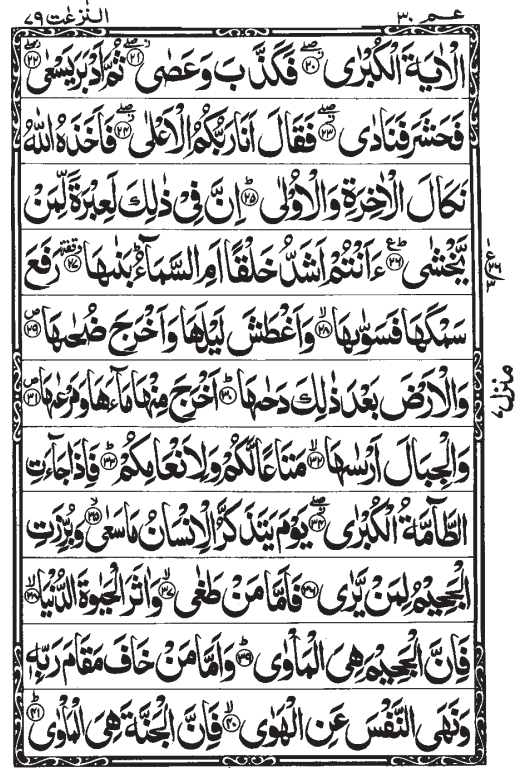 عـم ٣٠ النّٰزعٰت ٧٩
الْاٰيَةَ الْكُبْرٰى ۖ﴿٢٠﴾ فَكَذَّبَ وَعَصٰى ۖ﴿٢١﴾ ثُمَّ اَدْبَرَ يَسْعٰى ۖ﴿٢٢﴾
فَحَشَرَ فَنَادٰى ۖ﴿٢٣﴾ فَقَالَ اَنَا رَبُّكُمُ الْاَعْلٰى ۖ﴿٢٤﴾ فَاَخَذَهُ اللّٰهُ
نَكَالَ الْاٰخِرَةِ وَالْاُوْلٰى ؕ﴿٢٥﴾ اِنَّ فِيْ ذٰلِكَ لَعِبْرَةً لِّمَنْ
يَّخْشٰى ؕع﴿٢٦﴾ ءَاَنْتُمْ اَشَدُّ خَلْقًا اَمِ السَّمَآءُ ؕ بَنٰىهَا وقفة﴿٢٧﴾ رَفَعَ
سَمْكَهَا فَسَوّٰىهَا ۙ﴿٢٨﴾ وَاَغْطَشَ لَيْلَهَا وَاَخْرَجَ ضُحٰىهَا ۪﴿٢٩﴾
وَالْاَرْضَ بَعْدَ ذٰلِكَ دَحٰىهَا ؕ﴿٣٠﴾ اَخْرَجَ مِنْهَا مَآءَهَا وَمَرْعٰىهَا ۪﴿٣١﴾
وَالْجِبَالَ اَرْسٰىهَا ۙ﴿٣٢﴾ مَتَاعًا لَّكُمْ وَلِاَنْعَامِكُمْ ؕ﴿٣٣﴾ فَاِذَا جَآءَتِ
الطَّآمَّةُ الْكُبْرٰى ۖ﴿٣٤﴾ يَوْمَ يَتَذَكَّرُ الْاِنْسَانُ مَا سَعٰى ۙ﴿٣٥﴾ وَبُرِّزَتِ
الْجَحِيْمُ لِمَنْ يَّرٰى ﴿٣٦﴾ فَاَمَّا مَنْ طَغٰى ۙ﴿٣٧﴾ وَاٰثَرَ الْحَيٰوةَ الدُّنْيَا ۙ﴿٣٨﴾
فَاِنَّ الْجَحِيْمَ هِيَ الْمَاْوٰى ؕ﴿٣٩﴾ وَاَمَّا مَنْ خَافَ مَقَامَ رَبِّهٖ
وَنَهَى النَّفْسَ عَنِ الْهَوٰى ۙ﴿٤٠﴾ فَاِنَّ الْجَنَّةَ هِيَ الْمَاْوٰى ؕ﴿٤١﴾
منزل ٧